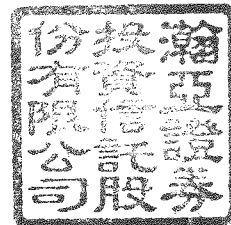 瀚亞證券
投資信託股
份有限公司